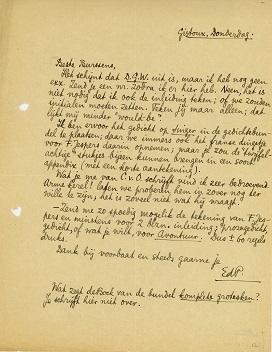 Gistoux, Donderdag.
Beste Teurssens,
Het schijnt dat D.G.W. uit is, maar ik heb nog geen
exx. Zend je een nr. zodra ik er hier heb. Neen, het is
niet nodig dat ik ook de inleiding teken; of we zouden
initialen moeten zetten. Teken jij maar alleen; dat
lijkt mij minder "would-be".
Ik ben ervoor het gedicht op Slinger in de gedichtenbun-
del te plaatsen; daar we immers ook het franse dingetje
voor F. Jespers daarin opnemen, maar je zou de twijfel-
achtige stukjes bijeen kunnen brengen in een soort
appendix (met een korte aantekening).
Wat je me van C. v. O. schrijft vind ik zeer bedroevend.
Arme kerel! Laten we proberen hem in zover nog ter
wille te zijn; het is zoveel niet wat hij vraagt.
— Zend me zo spoedig mogelik de tekening van F. Jes-
pers en minstens voor 2 blzn. inleiding, prozagedicht,
gedicht, of wat je wilt, voor Avontuur. Dus ± 60 regels
druks.
Dank bij voorbaat en steeds gaarne je
EdP.
Wat zegt deBock van de bundel komplete grotesken?
Je schrijft hier niet over.